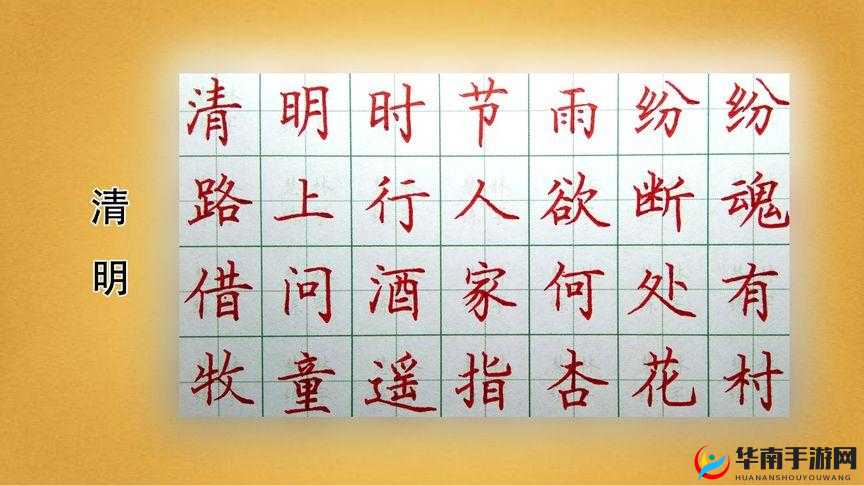 清明
清明时节雨纷纷
路上行人欲断魂
借问酒家何处有
牧童遥指杏花村
华南手游网
HUANANSHOUYOUWANG